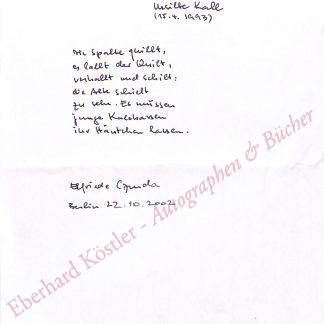 (15.4.1993)
Die Spalte quillt,
es lallt der Quilt,
verhallt und schilt:
die Alte schielt
zu sehr. Es müssen
junge
ihr Häutchen lassen.
Elfriede Czurda
Berlin 22.10.2002
Eberhard Köstler - Autographen & Bücher